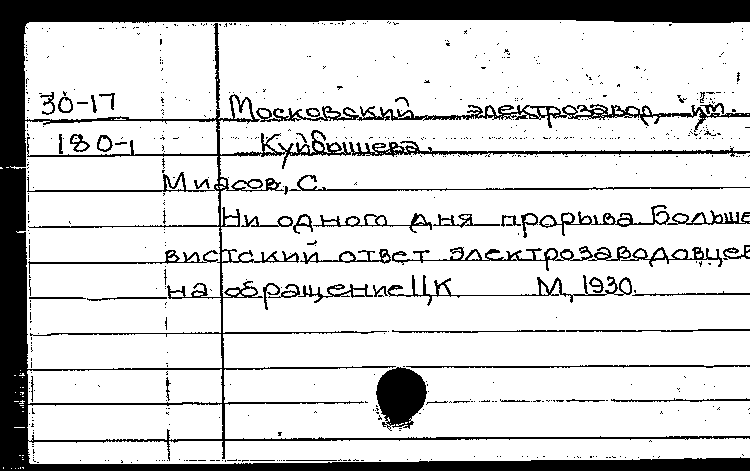 30-17
Московский электрозавод, им.
180-1
Куйбышева.
Миасов, С.
Ни одного дня прорыва. Больше
вистский ответ электрозаводовцев
на обращение ЦК М, 1930.